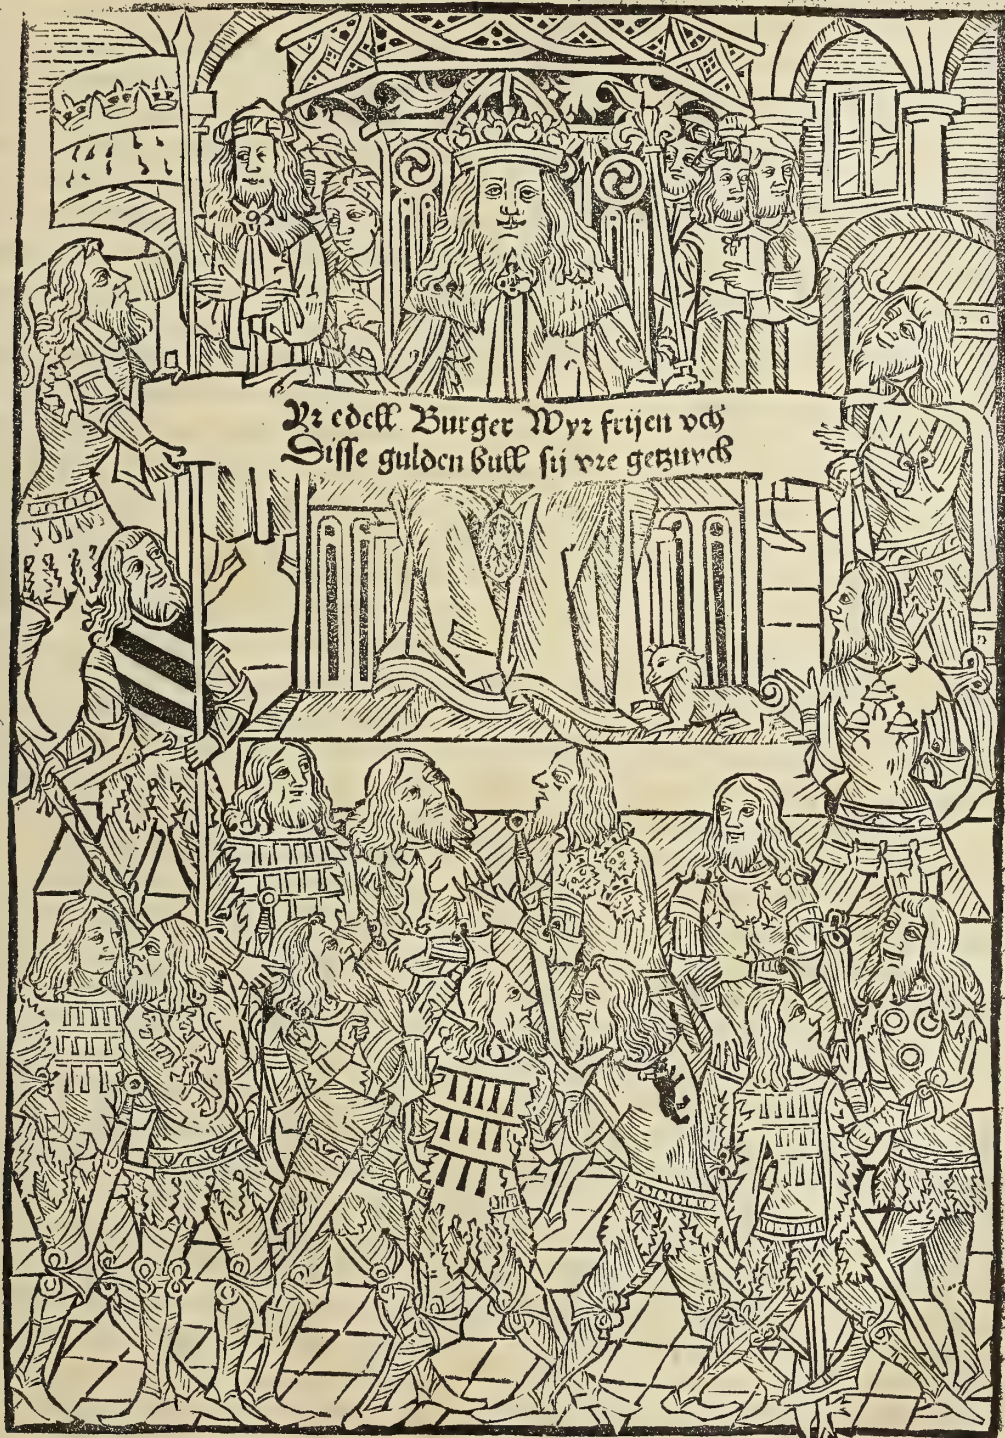 Yr edell Burger Wyr frijen vch
Disse gulden bull sij vre getzuych